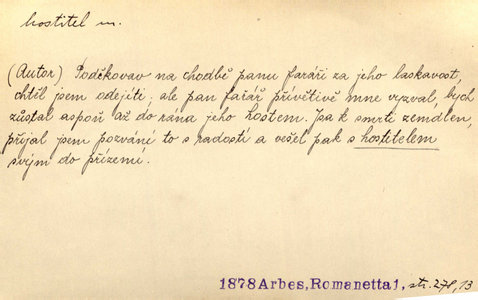 hostitel m.
(Autor) Poděkovav na chodbě panu faráři za jeho laskavost,
chtěl jsem odejíti; ale pan farář přívětivě mne vyzval, bych
zůstal aspoň až do rána jeho hostem. Jsa k smrti zemdlen,
přijal jsem pozvání to s radostí a vešel pak s hostitelem
svým do přízemí.
1878 Arbes, Romanetta 1, str. 278, 13